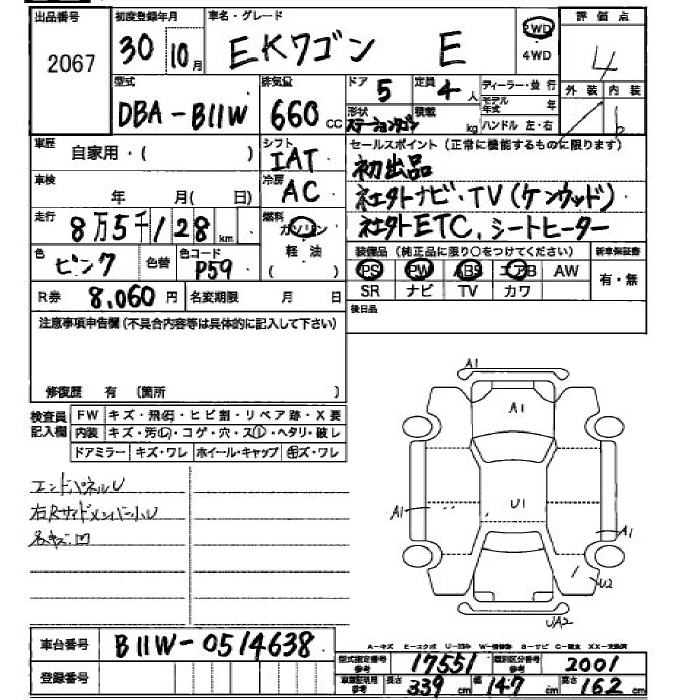 出品番号 初度登録年月 車名・グレード 2WD 評価点
2067 30 10月 EKワゴン E 4WD 4
型式 排気量 ドア 5 定員 4人 ディーラー・並行 外装 内装
DBA-B11W 660cc 形状 ステーションワゴン 積載 kg モデル年式 年 ハンドル 左・右 b
車歴 自家用・( ) シフト IAT セールスポイント(正常に機能するものに限ります)
初出品
車検 年 月(日) 冷房 AC 社外ナビ・TV(ケンウッド)
走行 8万5千128km 燃料 ガソリン 社外ETC,シートヒーター
軽油
( )
色 ピンク 色替 色コード P59 装備品(純正品に限り○をつけてください) 新車保証書
PS PW ABS エアB AW 有・無
R券 8,060円 名変期限 月 日 SR ナビ TV カワ
注意事項申告欄(不具合内容等は具体的に記入して下さい) 後日品
修復歴 有 (箇所 )
検査員記入欄 FW キズ・飛石・ヒビ割・リペア跡・X要
内装 キズ・汚レ・コゲ・穴・スレ・ヘタリ・破レ
ドアミラー キズ・ワレ ホイール・キャップ キズ・ワレ
エンドパネルU
右Rサイドメンバー小U
各キズ凹
A1
A1
U1
A1
A1
U2
UA2
車台番号 B11W-0514638
A-キズ E-エクボ
登録番号 型式指定番号 参考 17551 類別区分番号 参考 2001
車検証明用 参考 長さ 339cm 幅 147cm 高さ 162cm